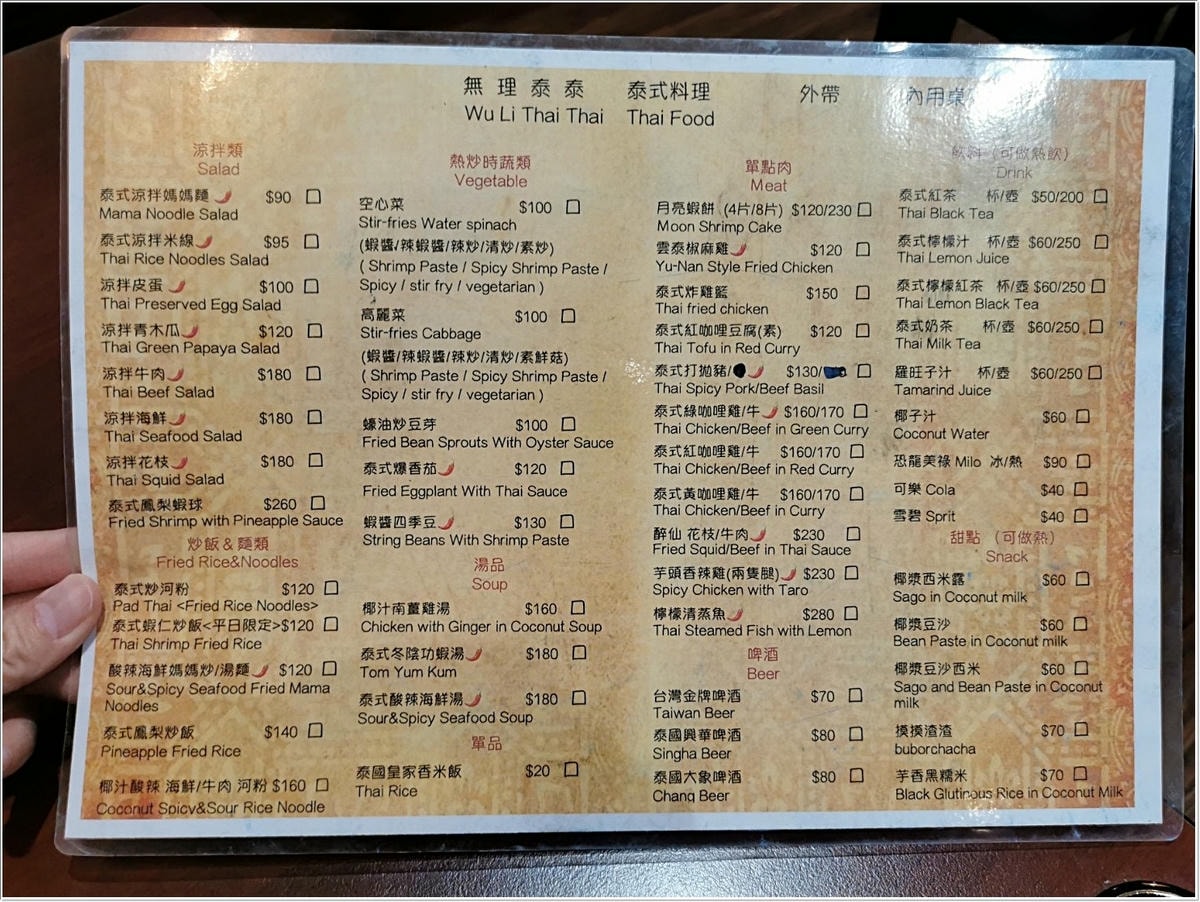 無理泰泰 泰式料理 外帶 內用桌
Wu Li Thai Thai Thai Food
涼拌類
Salad
泰式涼拌媽媽麵 $90
Mama Noodle Salad
泰式涼拌米線 $95
Thai Rice Noodles Salad
涼拌皮蛋 $100
Thai Preserved Egg Salad
涼拌青木瓜 $120
Thai Green Papaya Salad
涼拌牛肉 $180
Thai Beef Salad
涼拌海鮮 $180
Thai Seafood Salad
涼拌花枝 $180
Thai Squid Salad
泰式鳳梨蝦球 $260
Fried Shrimp with Pineapple Sauce
炒飯＆麵類
Fried Rice&Noodles
泰式炒河粉 $120
Pad Thai <Fried Rice Noodles>
泰式蝦仁炒飯<平日限定>$120
Thai Shrimp Fried Rice
酸辣海鮮媽媽炒/湯麵 $120
Sour&Spicy Seafood Fried Mama
Noodles
泰式鳳梨炒飯 $140
Pineapple Fried Rice
椰汁酸辣 海鮮/牛肉 河粉 $160
Coconut Spicy&Sour Rice Noodle
熱炒時蔬類
Vegetable
空心菜 $100
Stir-fries Water spinach
(蝦醬/辣蝦醬/辣炒/清炒/素炒)
( Shrimp Paste / Spicy Shrimp Paste /
Spicy / stir fry / vegetarian )
高麗菜 $100
Stir-fries Cabbage
(蝦醬/辣蝦醬/辣炒/清炒/素鮮菇)
( Shrimp Paste / Spicy Shrimp Paste /
Spicy / stir fry / vegetarian )
蠔油炒豆芽 $100
Fried Bean Sprouts With Oyster Sauce
泰式爆香茄 $120
Fried Eggplant With Thai Sauce
蝦醬四季豆 $130
String Beans With Shrimp Paste
湯品
Soup
椰汁南薑雞湯 $160
Chicken with Ginger in Coconut Soup
泰式冬陰功蝦湯 $180
Tom Yum Kum
泰式酸辣海鮮湯 $180
Sour&Spicy Seafood Soup
單品
泰國皇家香米飯 $20
Thai Rice
單點肉
Meat
月亮蝦餅 (4片/8片) $120/230
Moon Shrimp Cake
雲泰椒麻雞 $120
Yu-Nan Style Fried Chicken
泰式炸雞籃 $150
Thai fried chicken
泰式紅咖哩豆腐(素) $120
Thai Tofu in Red Curry
泰式打拋豬/ $130/
Thai Spicy Pork/Beef Basil
泰式綠咖哩雞/牛 $160/170
Thai Chicken/Beef in Green Curry
泰式紅咖哩雞/牛 $160/170
Thai Chicken/Beef in Red Curry
泰式黃咖哩雞/牛 $160/170
Thai Chicken/Beef in Curry
醉仙 花枝/牛肉 $230
Fried Squid/Beef in Thai Sauce
芋頭香辣雞(兩隻腿) $230
Spicy Chicken with Taro
檸檬清蒸魚 $280
Thai Steamed Fish with Lemon
啤酒
Beer
台灣金牌啤酒 $70
Taiwan Beer
泰國興華啤酒 $80
Singha Beer
泰國大象啤酒 $80
Chang Beer
飲料 (可做熱飲)
Drink
泰式紅茶 杯/壺 $50/200
Thai Black Tea
泰式檸檬汁 杯/壺 $60/250
Thai Lemon Juice
泰式檸檬紅茶 杯/壺 $60/250
Thai Lemon Black Tea
泰式奶茶 杯/壺 $60/250
Thai Milk Tea
羅旺子汁 杯/壺 $60/250
Tamarind Juice
椰子汁 $60
Coconut Water
恐龍美祿 Milo 冰/熱 $90
可樂 Cola $40
雪碧 Sprit $40
甜點 (可做熱)
Snack
椰漿西米露 $60
Sago in Coconut milk
椰漿豆沙 $60
Bean Paste in Coconut milk
椰漿豆沙西米 $60
Sago and Bean Paste in Coconut
milk
摸摸渣渣 $70
buborchacha
芋香黑糯米 $70
Black Glutinous Rice in Coconut Milk